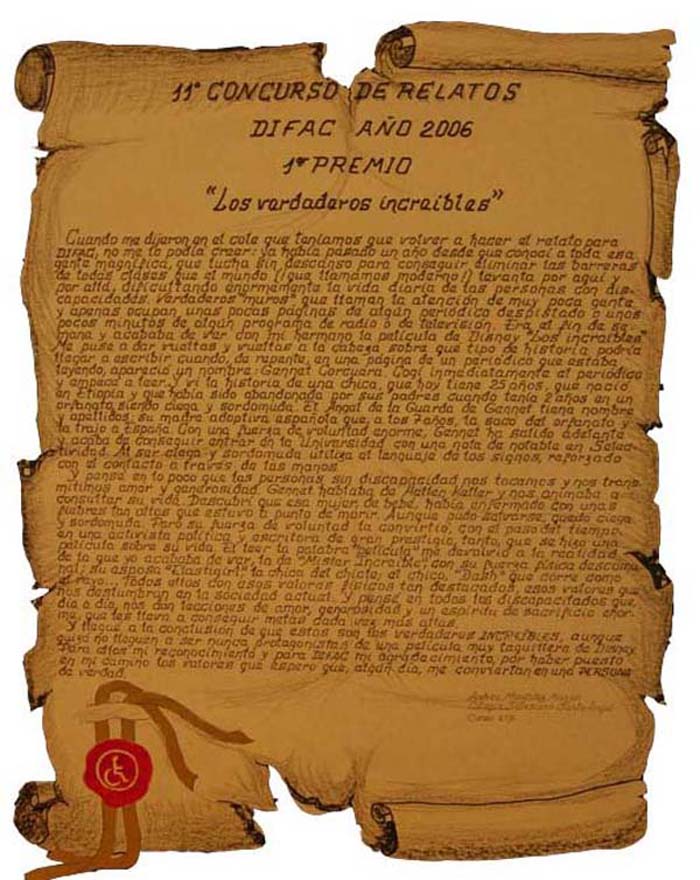 11º CONCURSO DE RELATOS
DIFAC AÑO 2006
1er PREMIO
"Los verdaderos increibles"
Cuando me dijeron en el cole que teníamos que volver a hacer el relato para
DIFAC, no me lo podía creer: ya había pasado un año desde que conocí a toda esa
gente magnífica, que lucha sin descanso para conseguir eliminar las barreras
de todas clases que el mundo (¡que llamamos moderno!) levanta por aquí y
por allá, dificultando enormemente la vida diaria de las personas con dis-
capacidades. Verdaderos "muros" que llaman la atención de muy poca gente
y apenas ocupan unas pocas páginas de algún periódico despistado o unos
pocos minutos de algún programa de radio o de televisión. Era el fin de se-
mana y acababa de ver con mi hermano la película de Disney "Los increibles"
Me puse a dar vueltas y vueltas a la cabeza sobre que tipo de historia podría
llegar a escribir cuando, de repente, en una página de un periódico que estaba
leyendo, apareció un nombre: Gennet Corcuera. Cogí inmediatamente el periódico
y empecé a leer. Y vi la historia de una chica, que hoy tiene 25 años, que nació
en Etiopía y que había sido abandonada por sus padres cuando tenía 2 años en un
orfanato siendo ciega y sordomuda. El Ángel de la Guarda de Gennet tiene nombre
y apellidos: su madre adoptiva española que, a los 7 años, la sacó del orfanato y
la trajo a España. Con una fuerza de voluntad enorme, Gennet ha salido adelante
y acaba de conseguir entrar en la Universidad con una nota de notable en Selec-
tividad. Al ser ciega y sordomuda utiliza el lenguaje de los signos, reforzado
con el contacto a través de las manos.
Y pensé en lo poco que las personas sin discapacidad nos tocamos y nos trans-
mitimos amor y generosidad. Gennet hablaba de Hellen Keller y nos animaba a
consultar su vida. Descubrí que esa mujer de bebé, había enfermado con unas
fiebres tan altas que estuvo a punto de morir. Aunque pudo salvarse, quedó ciega
y sordomuda. Pero su fuerza de voluntad la convirtió, con el paso del tiempo,
en una activista política y escritora de gran prestigio, tanto, que se hizo una
película sobre su vida. El leer la palabra "película" me devolvió a la realidad
de la que yo acababa de ver, la de "Mister Increible", con su fuerza física descomu-
nal; su esposa "Elastigirl" la chica del chicle; el chico, "Dash" que corre como
el rayo... Todos ellos con esos valores físicos tan destacados, esos valores que
nos deslumbran en la sociedad actual. Y pensé en todos los discapacitados que,
día a día, nos dan lecciones de amor, generosidad y un espíritu de sacrificio enor-
me, que les lleva a conseguir metas cada vez más altas.
Y llegué a la conclusión de que estos son los verdaderos INCREÍBLES, aunque
quizá no lleguen a ser nunca protagonistas de una película muy taquillera de Disney.
Para ellos mi reconocimiento y para DIFAC mi agradecimiento, por haber puesto
en mi camino los valores que espero que, algún día, me conviertan en una PERSONA
de verdad.
Andrea
Colegio
Curso